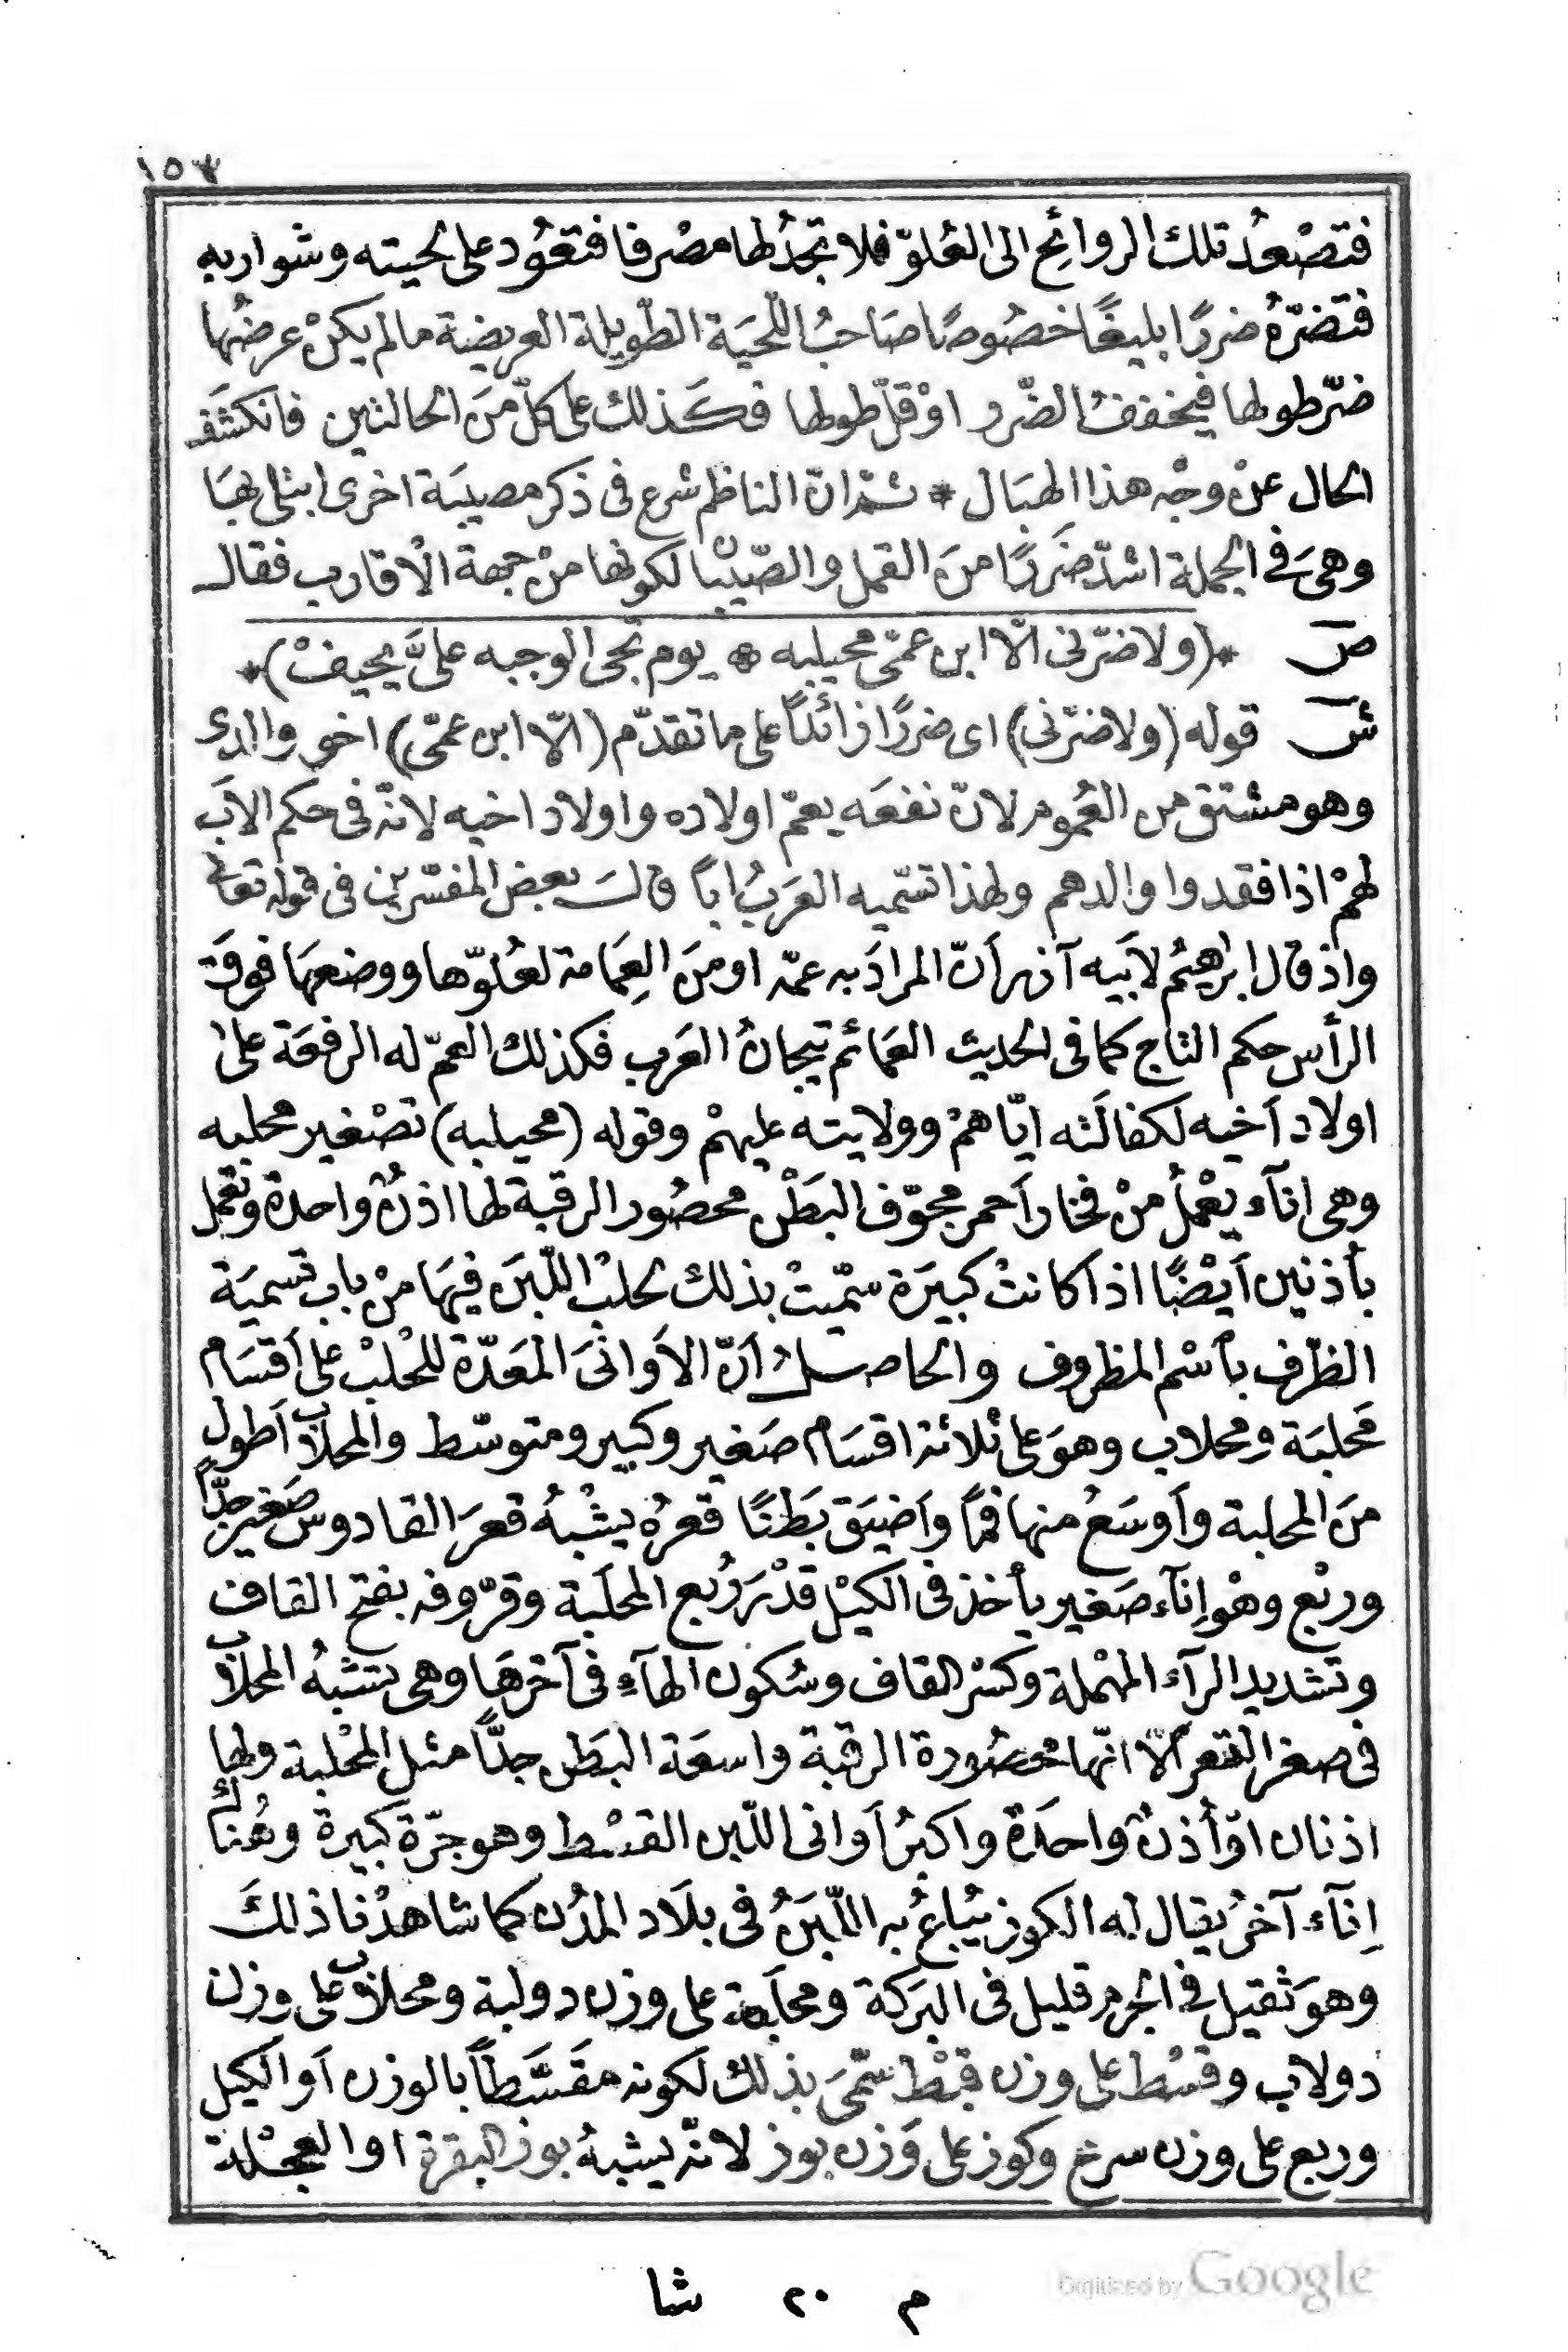 ١٥٣
فتصْعُد تلك الروائح الى العُلوّ فلا تجدُ لها مصْرفا فتعُود على لحيته وشواربه
فتضرّهُ ضررًا بليغًا خصُوصًا صَاحبُ اللّحيَة الطّويلة العريضة مالم يكنْ عرضُها
ضرّ طولها فيخففُ الضّرر اوْ قلّ طولها فكَذلك على كلّ منَ الحالتين فانكشَف
الحال عنْ وجْه هذا الهبَال * ثمّ انّ الناظم شرع فى ذكر مصيبَة اخرى ابتلى بهَا
وهىَ فى الجملة اشدّ ضَررًا منَ القمل والصّيبْان لكونها منْ جهة الْاقارب فقال
ص * (ولا ضرّنى الّا ابن عمّى محيلبه * يوم تجى الوجبه علىَّ يحيفْ) *
ش قوله (ولا ضرّنى) اى ضررًا زائدًا على ما تقدّم (الّا ابن عمّى) اخو والدى
وهو مشتق من العُموم لانّ نفعَه يعمّ اولاده واولاد اخيه لانّه فى حكم الابَ
لهمْ اذا فقدوا والدهم ولهذا تسّميه العَربُ اباً قالَ بعض المفسّرين فى قوله تعالى
واذ قال ابرٰهيمُ لاَبيه آذر أنّ المرادَ به عمّه او منَ العِمَامة لعُلوّها ووضعهَا فوقَ
الرأس حكم التاج كما فى الحديث العَمائم تيجانُ العَرب فكذلك العمّ له الرفعَة على
اولاد اَخيه لكفالَته ايّاهمْ وولايته عليهمْ وقوله (محيلبه) تصْغير محلبه
وهى انآء يعْملُ منْ فخار اَحمر مجوّف البَطْن محصُور الرقبة لها اذنٌ واحدة وتعمل
بأذنين اَيضًا اذا كانتْ كبيَرة سمّيتْ بذلك لحلبْ اللّبَن فيهَا منْ باب تسميَة
الظّرف بأسْم المظروف والحاصلُ أنّ الاَوانىَ المعَدّة للحْلبْ على اَقسَام
مَحلبَة ومحلاب وهوَ على ثلاثة اقسَام صَغير وكبير ومتوسّط والمحلاَب اَطول
منَ المحلبة وأَوسَعُ منها فمًا وأَضيَق بَطنًا قعرُه يشْبهُ قعرَ القادوس صَغير جدًّا
وربْع وهْو إنآء صَغير يأخذ فى الكيْل قدْرَ رُبع المحلَبة وقرّوفه بفتح القاف
وتشديد الرآء المهْملة وكسْر القاف وسُكون الهآءِ فى آخرهَا وهى تشبهُ المحلاَب
فى صغر القعر الّا انّها محصُورة الرقبة واسعَة البَطن جدًّا مثل المحْلبة ولها
اذنان اوْ أُذنٌ واحدَةٌ واكبرُ اَوانى اللّبن القسْط وهو جرّة كبيرة وهُناكَ
إنآء آخرُ يقال له الكوز يُباعُ به اللّبَنُ فى بلَاد المدُن كما شاهدْنا ذلكَ
وهوَ ثقيل فى الجرم قليل فى البَركة ومحلَبة على وزن دولبة ومحلاَب على وزن
دولاب وقسْط على وزن قبْط سمّىَ بذلك لكونه مقَسَّطاً بالوزن اَو الكيل
وربع على وزن سرع وكوز على وَزن بوز لانّه يشبهُ بوز البقرة او العجْلة
م ٢٠ شا
Digitized by Google